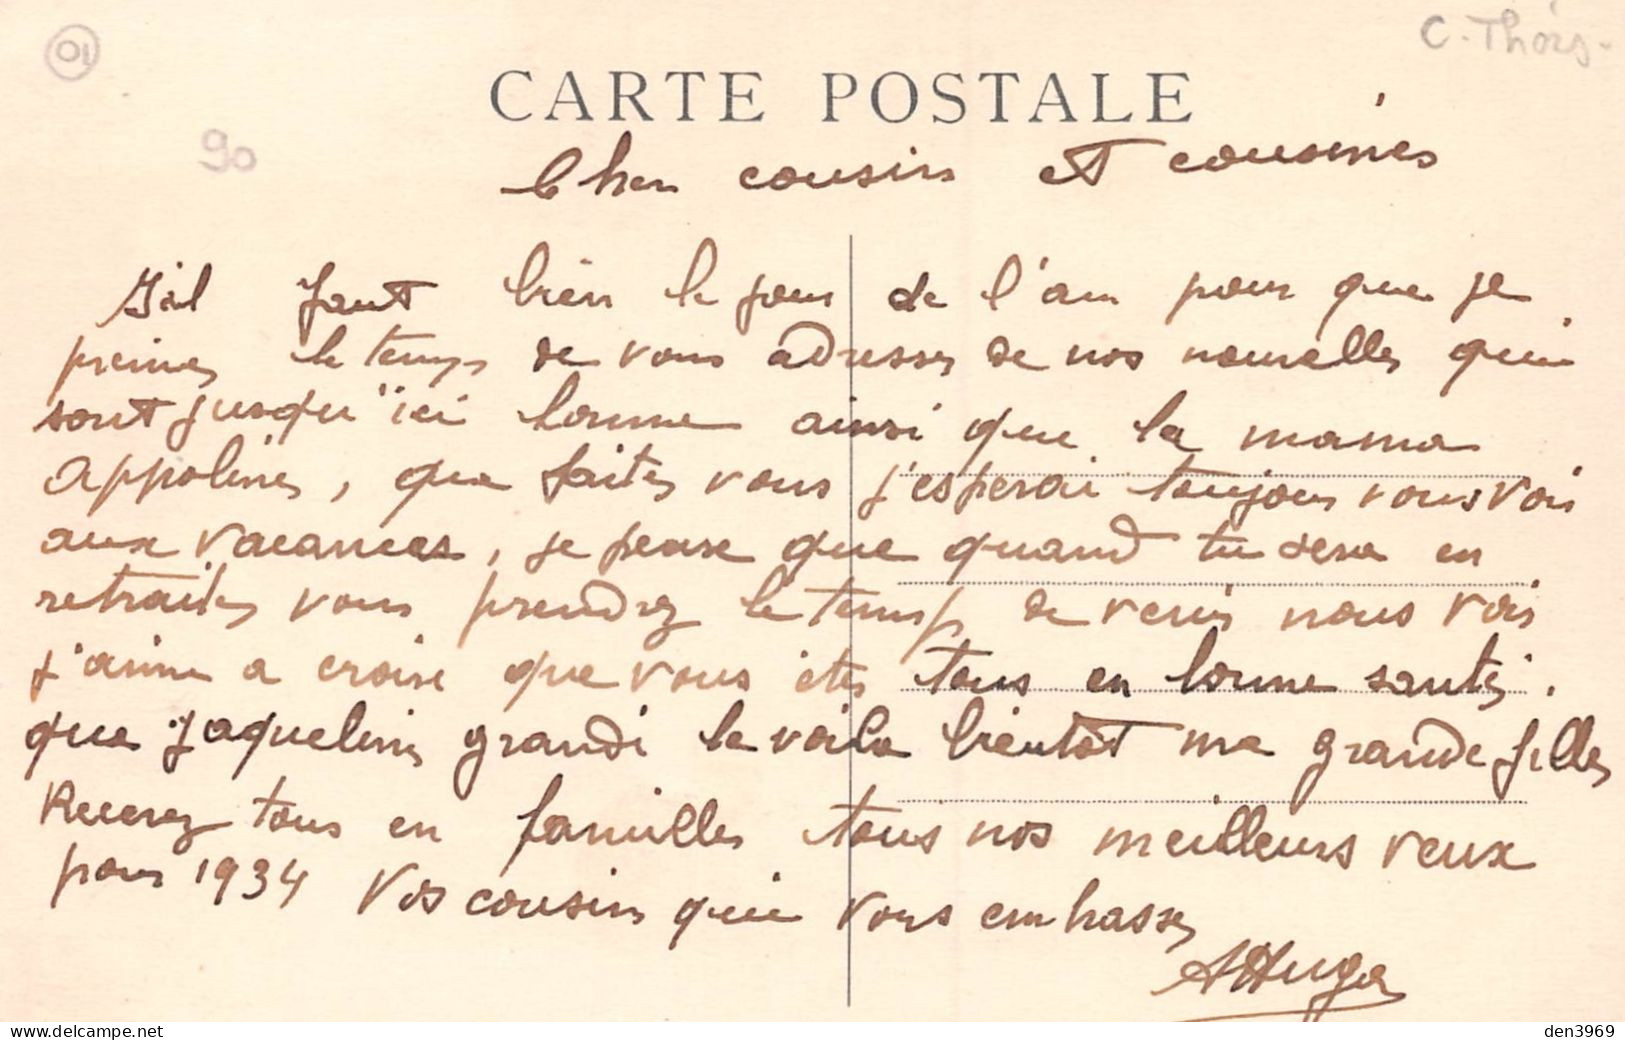 01
C. Thois.
90
CARTE POSTALE
Cher cousin et cousines
Il faut bien le jour de l'an pour que je
prennes le temps de vous adresser de nos nouvelles qui
sont jusqu'ici bonne ainsi que la mama
Appolines, que faites vous j'esperai toujours vous voir
aux vacances, je pense que quand tu sera en
retraites vous prendrez le temps de venir nous voir
j'aime a croire que vous êtes tous en bonne santés.
que Jaquelines grandi la voila bientôt une grande filles
Recevez tous en familles tous nos meilleurs veux
pour 1934 Vos cousins qui vous embrasses
AHugo
delcampe.net
den3969